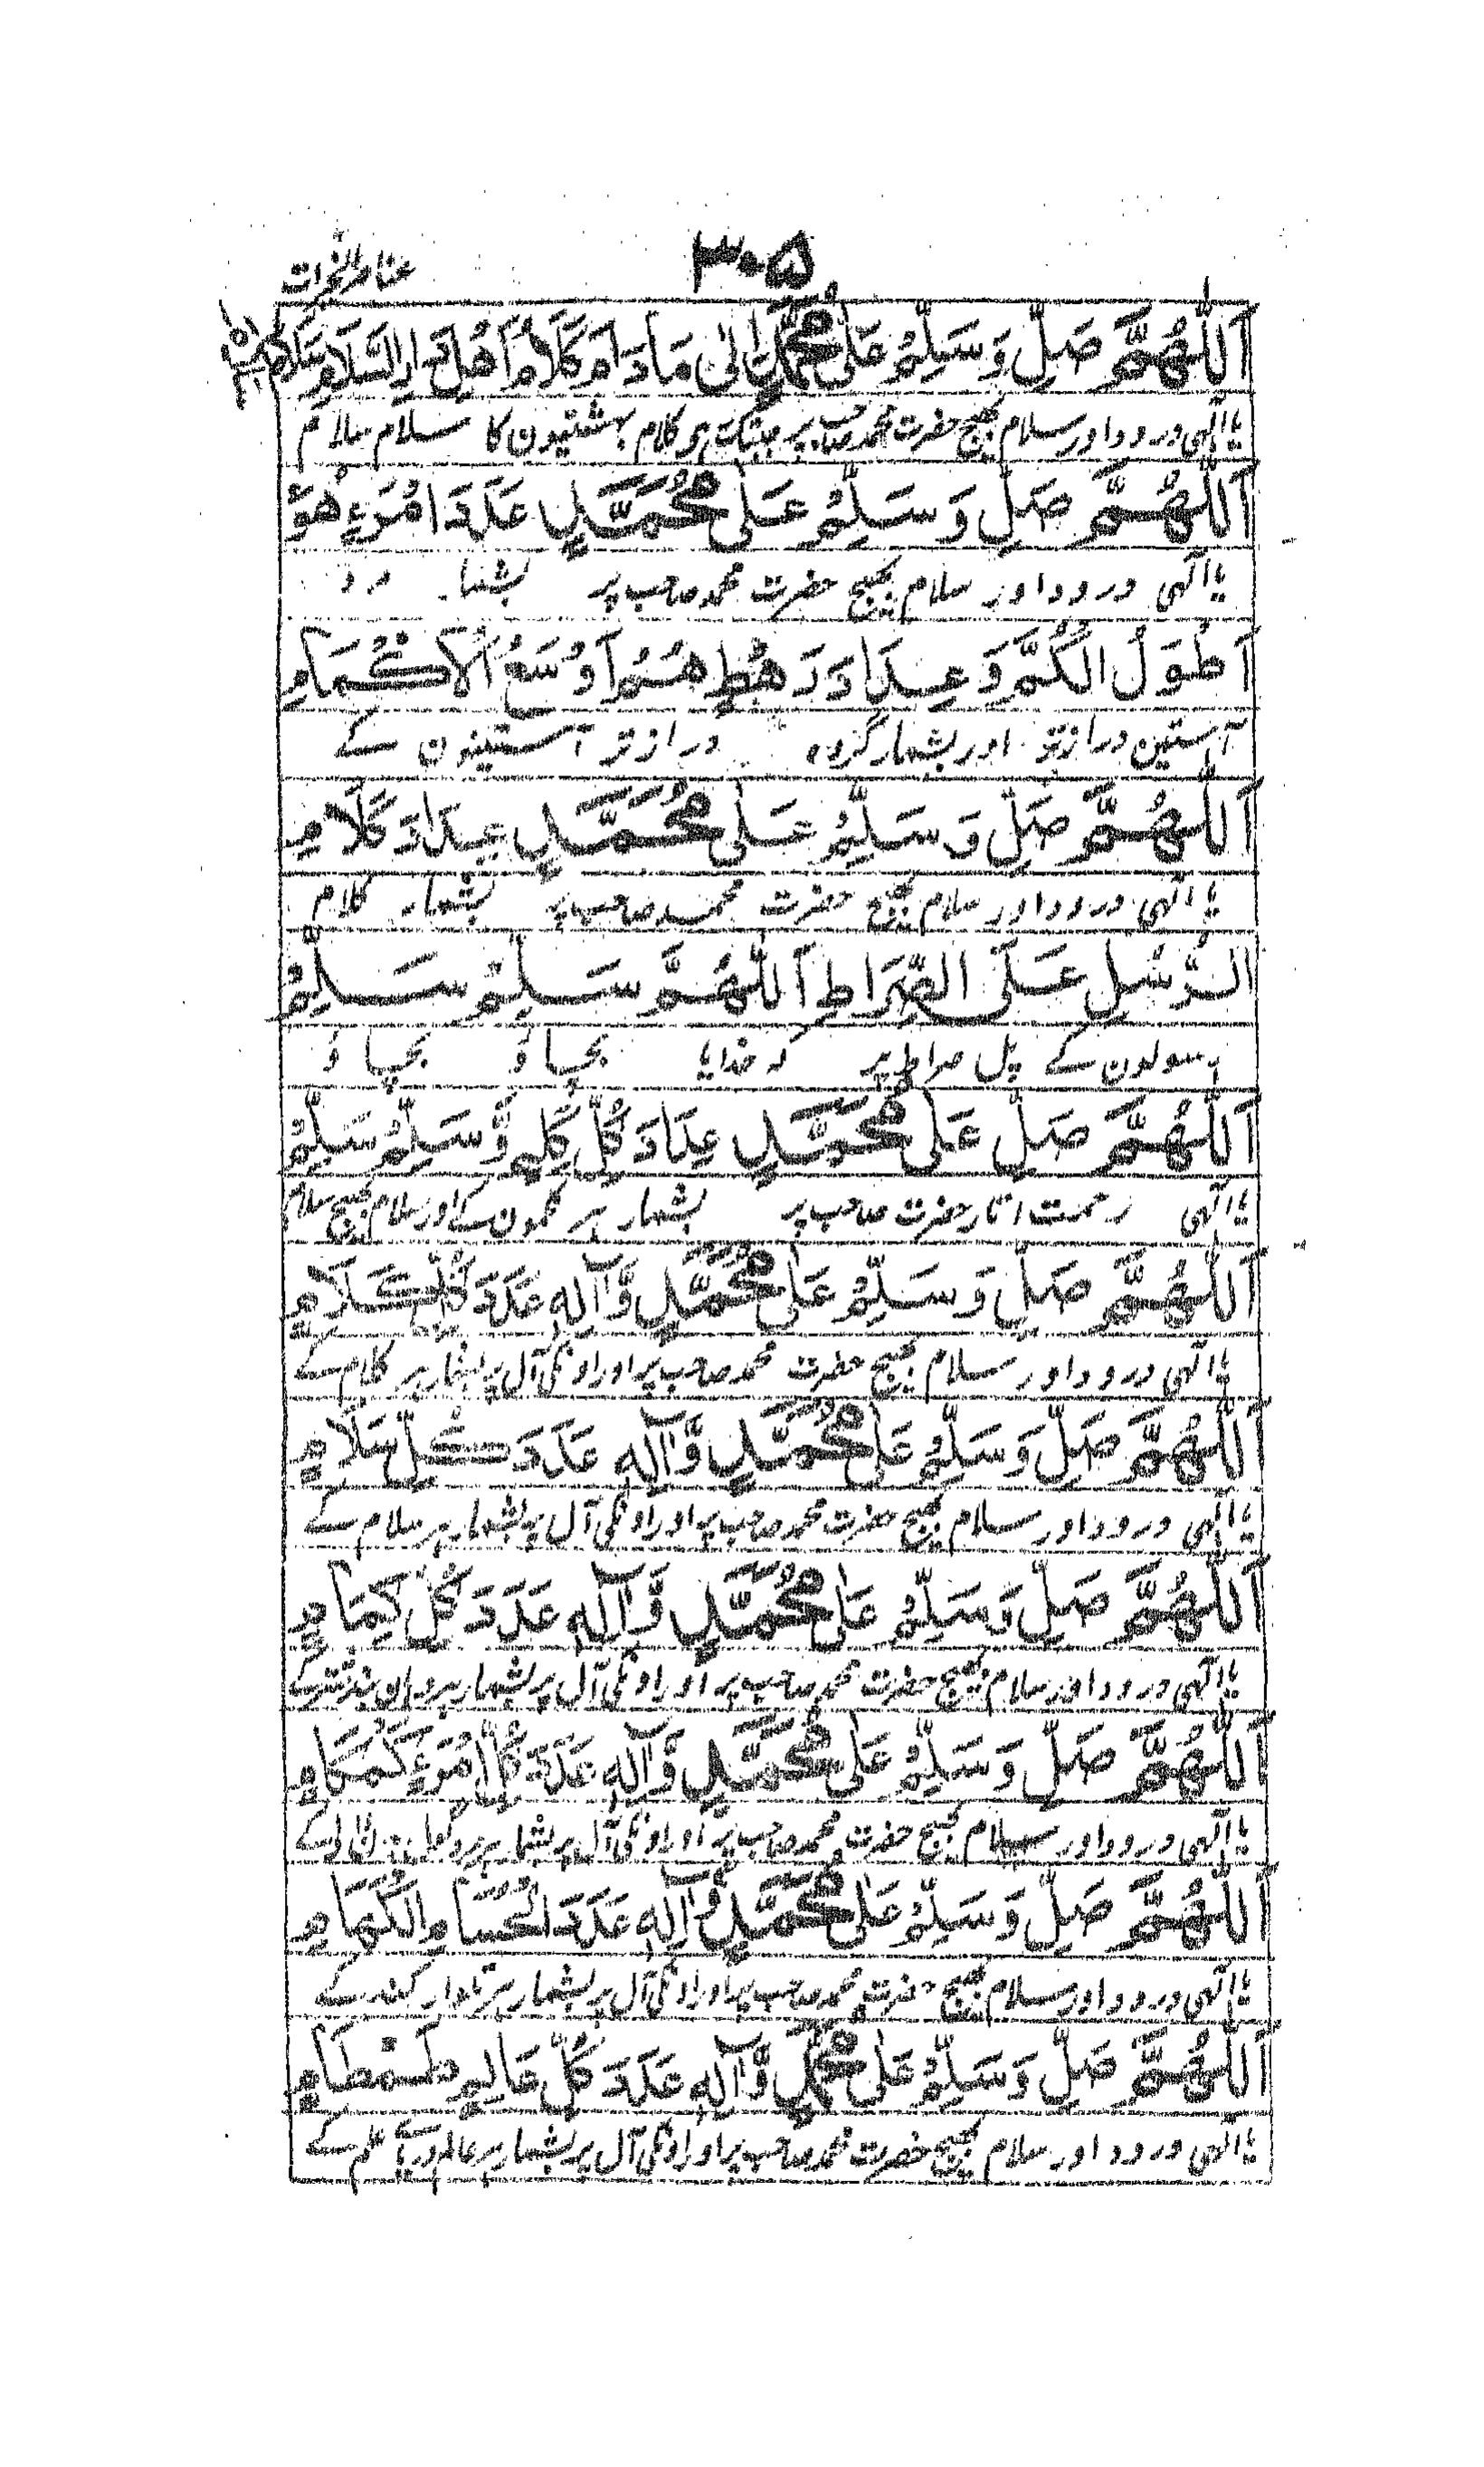 ۳۰۵
عناصر الخیرات
اَللّٰهُمَّ صَلِّ وَسَلِّمْ عَلٰی مُحَمَّدٍ اِلٰی مَا دَامَ كَلَامُ اَهْلِ دَارِ السَّلَامِ سَلَامٌ
یا الٰہی درود اور سلام بھیج حضرت محمد صاحب پر جبتک ہو کلام بہشتیون کا سلام سلام
اَللّٰهُمَّ صَلِّ وَسَلِّمْ عَلٰی مُحَمَّدٍ عَدَدَ امْرَءٍ هُوَ
یا الٰہی درود اور سلام بھیج حضرت محمد صاحب پر بشمار مرد
اَطْوَلُ الْكُمِّ وَعِدَادَ رَهْطٍ هُمْ اَوْسَعُ الْاَكْمَامِ
آستین دراز تو اور بشمار گروہ دراز تر آستینون کے
اَللّٰهُمَّ صَلِّ وَسَلِّمْ عَلٰی مُحَمَّدٍ عِدَادَ كَلَامِ
یا الٰہی درود اور سلام بھیج حضرت محمد صاحب پر بشمار کلام
الرُّسُلِ عَلَی الصِّرَاطِ اَللّٰهُمَّ سَلِّمْ سَلِّمْ
رسولون کے پل صراط پر کہ خدایا بچاؤ بچاؤ
اَللّٰهُمَّ صَلِّ عَلٰی مُحَمَّدٍ عِدَادَ كُلِّ كَلِمٍ وَّسَلِّمْ سَلِّمْ
یا الٰہی رحمت اتار حضرت صاحب پر بشمار ہر کلمون کے اور سلام بھیج سلام
اَللّٰهُمَّ صَلِّ وَسَلِّمْ عَلٰی مُحَمَّدٍ وَّاٰلِهٖ عَدَدَ كُلِّ كَلَامٍ
یا الٰہی درود اور سلام بھیج حضرت محمد صاحب پر اور اونکی آل پر بشمار ہر کلام کے
اَللّٰهُمَّ صَلِّ وَسَلِّمْ عَلٰی مُحَمَّدٍ وَّاٰلِهٖ عَدَدَ كُلِّ سَلَامٍ
یا الٰہی درود اور سلام بھیج حضرت محمد صاحب پر اور اونکی آل پر بشمار ہر سلام کے
اَللّٰهُمَّ صَلِّ وَسَلِّمْ عَلٰی مُحَمَّدٍ وَّاٰلِهٖ عَدَدَ كُلِّ كِمَامٍ
یا الٰہی درود اور سلام بھیج حضرت محمد صاحب پر اور اونکی آل پر بشمار ہر
اَللّٰهُمَّ صَلِّ وَسَلِّمْ عَلٰی مُحَمَّدٍ وَّاٰلِهٖ عَدَدَ كُلِّ امْرَءٍ
یا الٰہی درود اور سلام بھیج حضرت محمد صاحب پر اور اونکی آل پر بشمار ہر مرد
اَللّٰهُمَّ صَلِّ وَسَلِّمْ عَلٰی مُحَمَّدٍ وَّاٰلِهٖ عَدَدَ الْحُسَامِ الْكَهَامِ
یا الٰہی درود اور سلام بھیج حضرت محمد صاحب پر اور اونکی آل پر بشمار ہر تلوار کند کے
اَللّٰهُمَّ صَلِّ وَسَلِّمْ عَلٰی مُحَمَّدٍ وَّاٰلِهٖ عَدَدَ كُلِّ عَالِمٍ طَمْطَامٍ
یا الٰہی درود اور سلام بھیج حضرت محمد صاحب پر اور اونکی آل پر بشمار ہر عالم دریاے علم کے